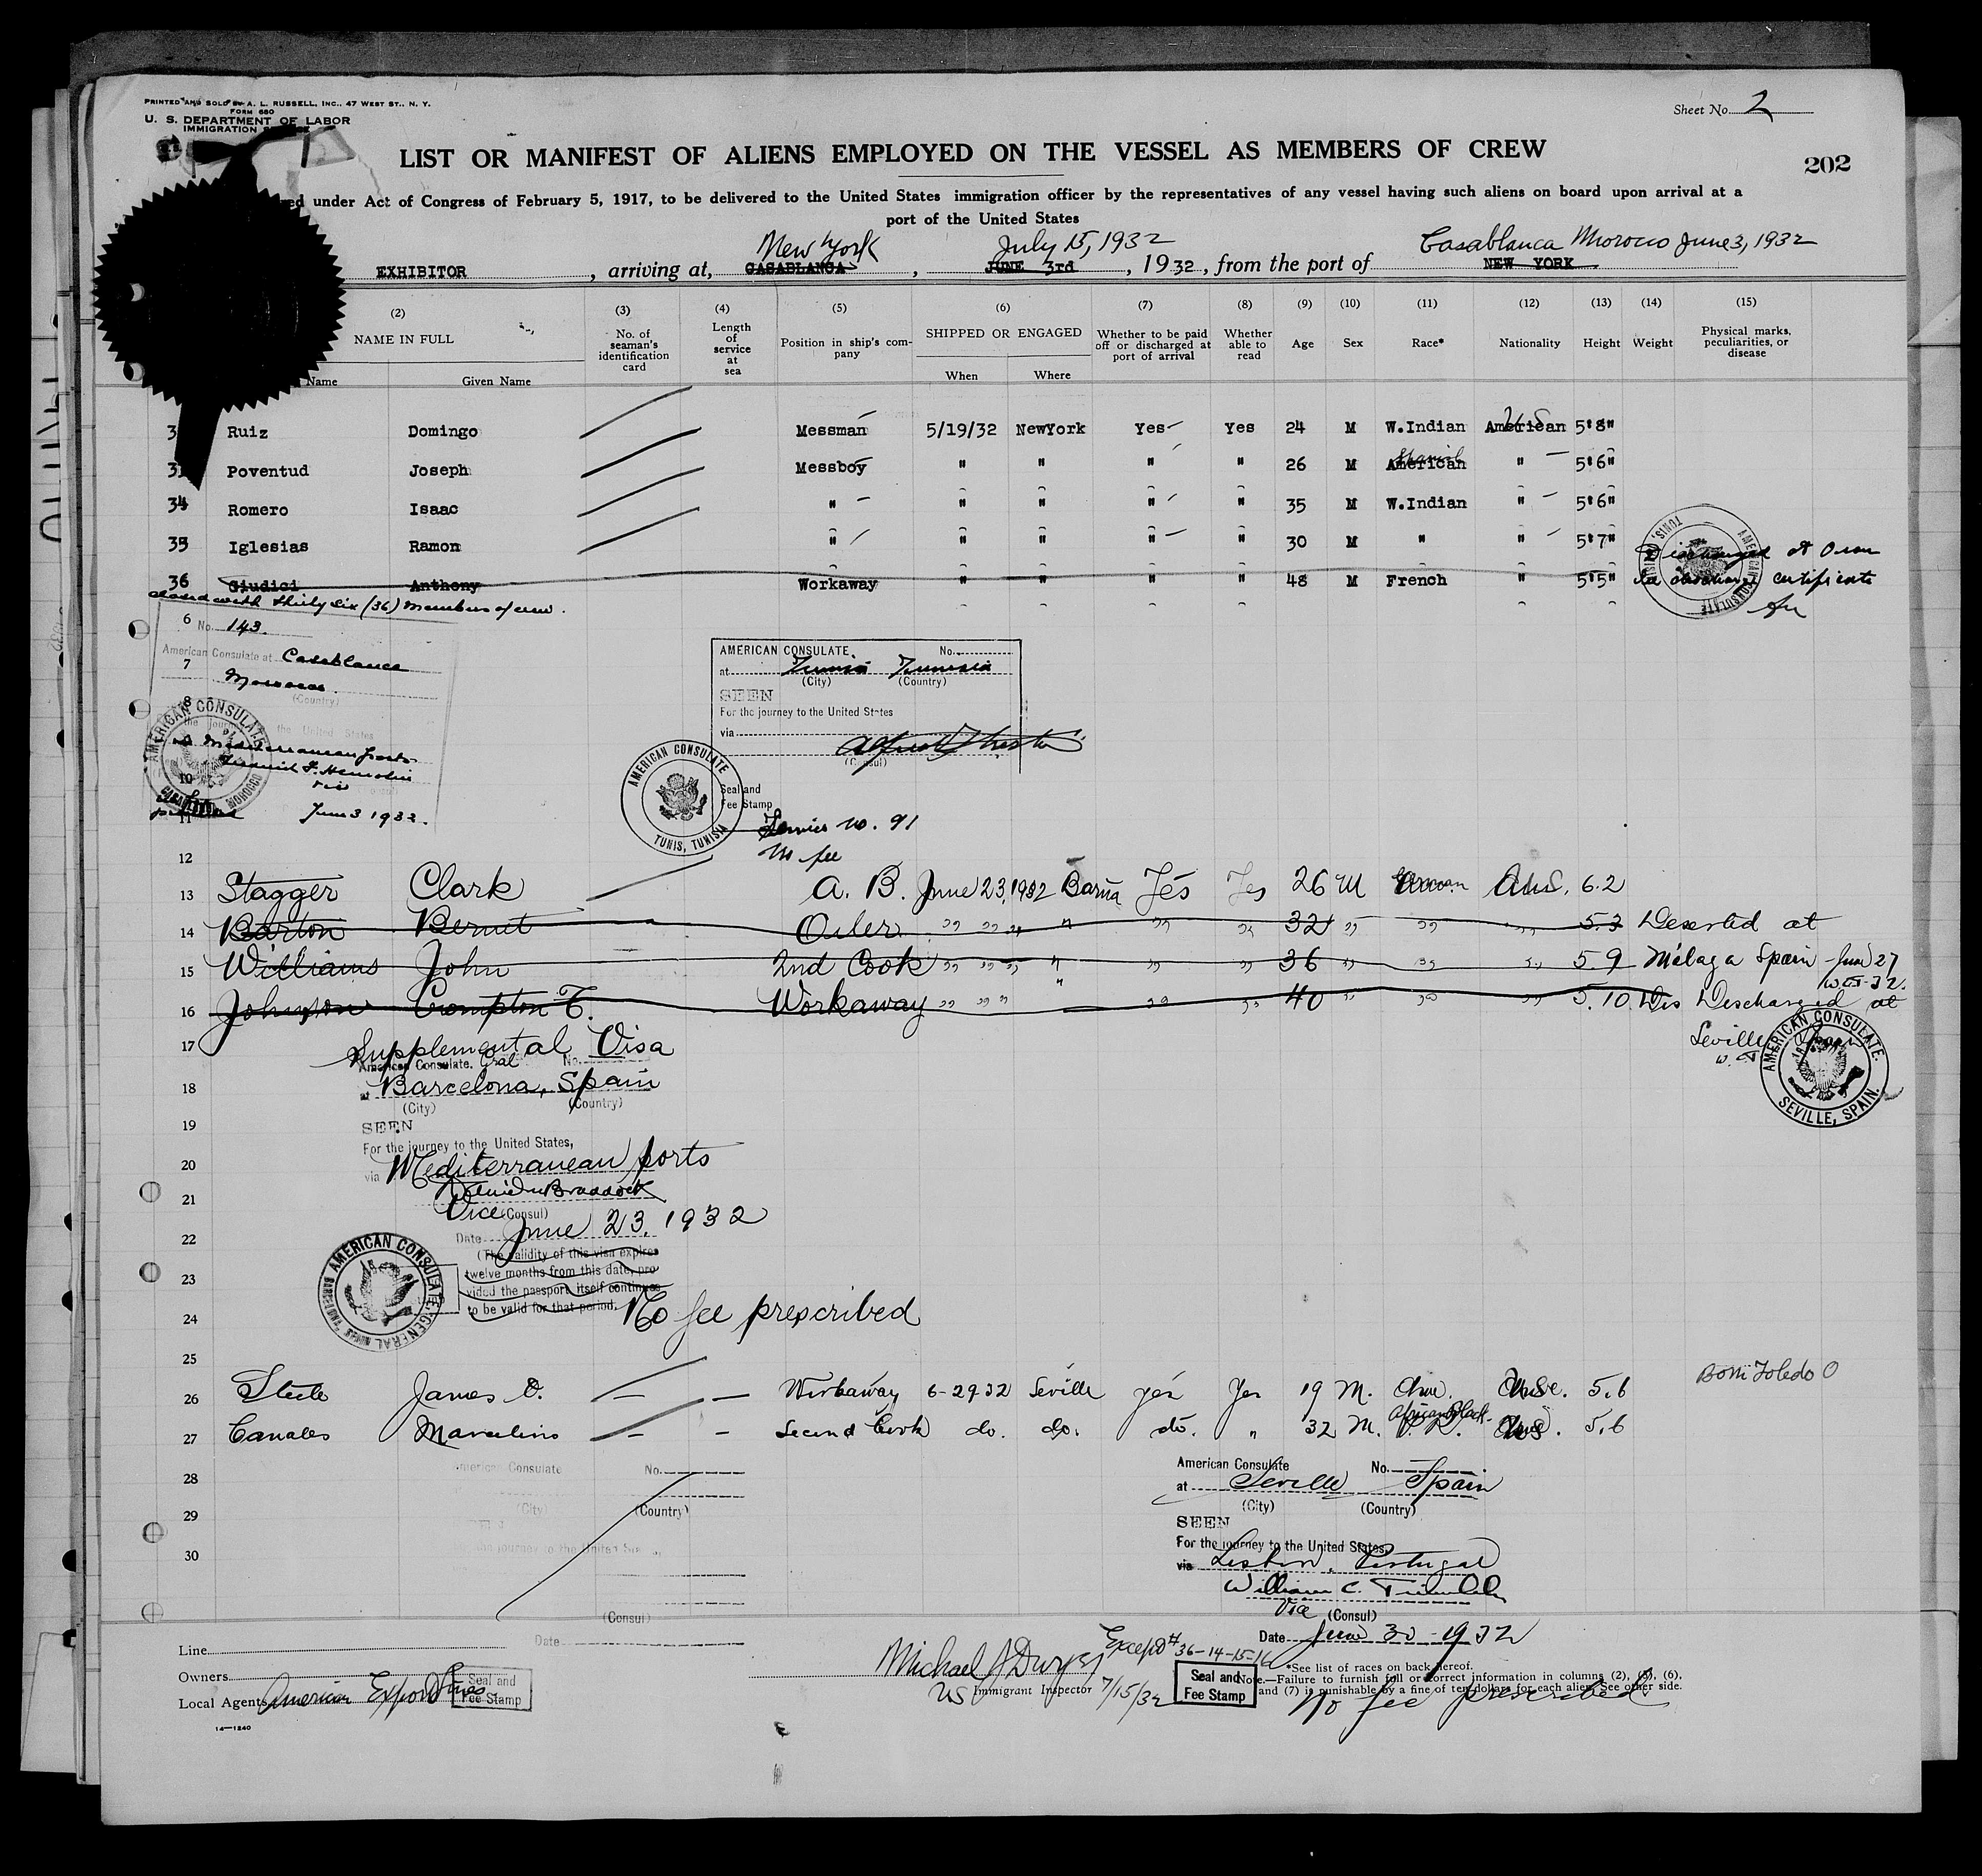 PRINTED AND SOLD BY A. L. RUSSELL, INC., 47 WEST ST., N. Y.
FORM 680
U. S. DEPARTMENT OF LABOR
IMMIGRATION
Sheet No. 2
LIST OR MANIFEST OF ALIENS EMPLOYED ON THE VESSEL AS MEMBERS OF CREW
202
under Act of Congress of February 5, 1917, to be delivered to the United States immigration officer by the representatives of any vessel having such aliens on board upon arrival at a
port of the United States
New York July 15, 1932 Casablanca Morocco June 3, 1932
EXHIBITOR , arriving at, CASABLANCA , JUNE 3rd , 1932, from the port of NEW YORK
(2) (3) (4) (5) (6) (7) (8) (9) (10) (11) (12) (13) (14) (15)
NAME IN FULL No. of seaman's identification card Length of service at sea Position in ship's company SHIPPED OR ENGAGED Whether to be paid off or discharged at port of arrival Whether able to read Age Sex Race* Nationality Height Weight Physical marks, peculiarities, or disease
Name Given Name When Where
Ruiz Domingo Messman 5/19/32 NewYork Yes Yes 24 M W.Indian American U.S. 5'8"
Poventud Joseph Messboy " " " " 26 M American Spanish " 5'6"
34 Romero Isaac " " " " " 35 M W.Indian " 5'6"
35 Iglesias Ramon " " " " " 30 M " " 5'7"
36 Giudici Anthony Workaway " " " " 48 M French " 5'5" Discharged at Oran
discharge certificate
closed with thirty six (36) members of crew.
6 No. 143.
American Consulate at Casablanca
7 Morocco.
(Country)
8
the journey the United States
Mediterranean ports
10
Vice
11 June 3 1932.
AMERICAN CONSULATE
CASABLANCA MOROCCO
AMERICAN CONSULATE No.
at Tunis Tunisia
(City) (Country)
SEEN
For the journey to the United States
via
(Consul)
Seal and
Fee Stamp
AMERICAN CONSULATE
TUNIS, TUNISIA
Service No. 91
No fee
AMERICAN CONSULATE
TUNIS, TUNISIA
12
13 Stagger Clark A. B. June 23, 1932 Barna Yes Yes 26 M German 6.2
14 Barton Oiler " " " " " " 32 " " " 5.3 Deserted at
15 Williams John 2nd Cook " " " " " " 36 " " " 5.9 Málaga Spain June 27
16 Johnson Crompton T. Workaway " " " " " " 40 " " " 5.10 Discharged at
Seville Spain
AMERICAN CONSULATE.
SEVILLE, SPAIN.
17 Supplemental Visa
American Consulate, Gral No.
18 at Barcelona, Spain
(City) (Country)
19 SEEN
For the journey to the United States,
20 via Mediterranean ports
21 Braddock
Vice (Consul)
22 Date June 23, 1932
(The validity of this visa expires
23 twelve months from this date, pro
vided the passport itself continues
to be valid for that period.
24 No fee prescribed
AMERICAN CONSULATE GENERAL
25
26 Steele James O. — — Workaway 6-29 32 Seville yes Yes 19 M. Ame. 5.6 Born Toledo O
27 Canales Marcelino — — Second Cook do. do. do. " 32 M. P.R. African Black US. 5.6
28 American Consulate No.
(City) (Country)
29
the journey to the United States
30
(Consul)
Date
American Consulate No.
at Seville Spain
(City) (Country)
SEEN
For the journey to the United States,
via Lisbon, Portugal
William C. Trimble
Vice (Consul)
Date June 30-1932
Line
Owners
Local Agents American Export Lines
Seal and
Fee Stamp
14—1240
Michael J Dwyer Except # 36-14-15-16
US Immigrant Inspector 7/15/32
Seal and
Fee Stamp
*See list of races on back hereof.
Note.—Failure to furnish full or correct information in columns (2), (5), (6),
and (7) is punishable by a fine of ten dollars for each alien. See other side.
No fee prescribed